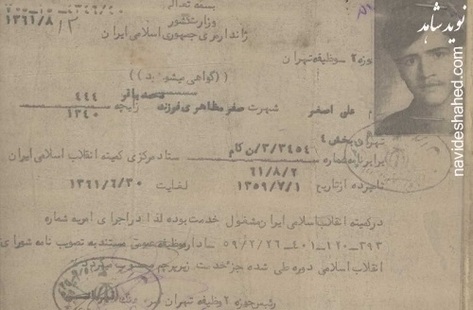 بسمه تعالی
وزارت کشور
ژاندارمری جمهوری اسلامی ایران
۱۳۶۱/۸/۱۲
نوید شاهد
حوزه ۲ وظیفه تهران
((گواهی میشود))
علی اصغر شهرت صفر مظاهری فرزند محمد باقر زایچه ۴۴۴
۱۳۴۰
تهران بخش ۴
برابر نامه شماره ۳/۳۴۵۴/ن کام ستاد مرکزی کمیته انقلاب اسلامی ایران
۶۱/۸/۲
نامبرده از تاریخ ۱۳۵۹/۷/۱ لغایت ۱۳۶۱/۶/۳۰
در کمیته انقلاب اسلامی ایران مشغول خدمت بوده لذا در اجرای امریه شماره
۳۹۳-۲۲۰-۴۰۱-۵۹/۲/۲۶ مستند به تصویب نامه شورای
انقلاب اسلامی دوره طی شده جز خدمت زیر پرچم
رئیس حوزه ۲ وظیفه تهران
navideshahed.com